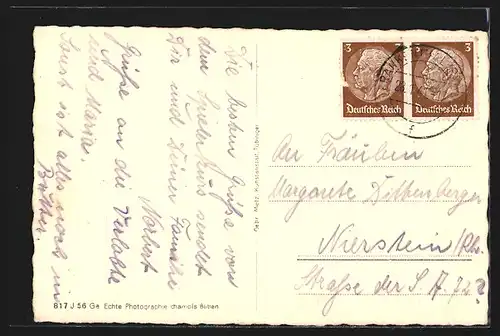 Die besten Grüße von
dem Spielerkurs sendet
Dir und Deiner Familie
Norbert
Grüße an die Verlobte
und Maria.
Sonst ist alles noch in
Butter.
3
Deutsches Reich
3
Deutsches Reich
An Fräulein
Margarete Dittenberger
Nierstein/Rh.
Straße der S.A. 72
817 J 56 Ge Echte Photographie chamois Bütten